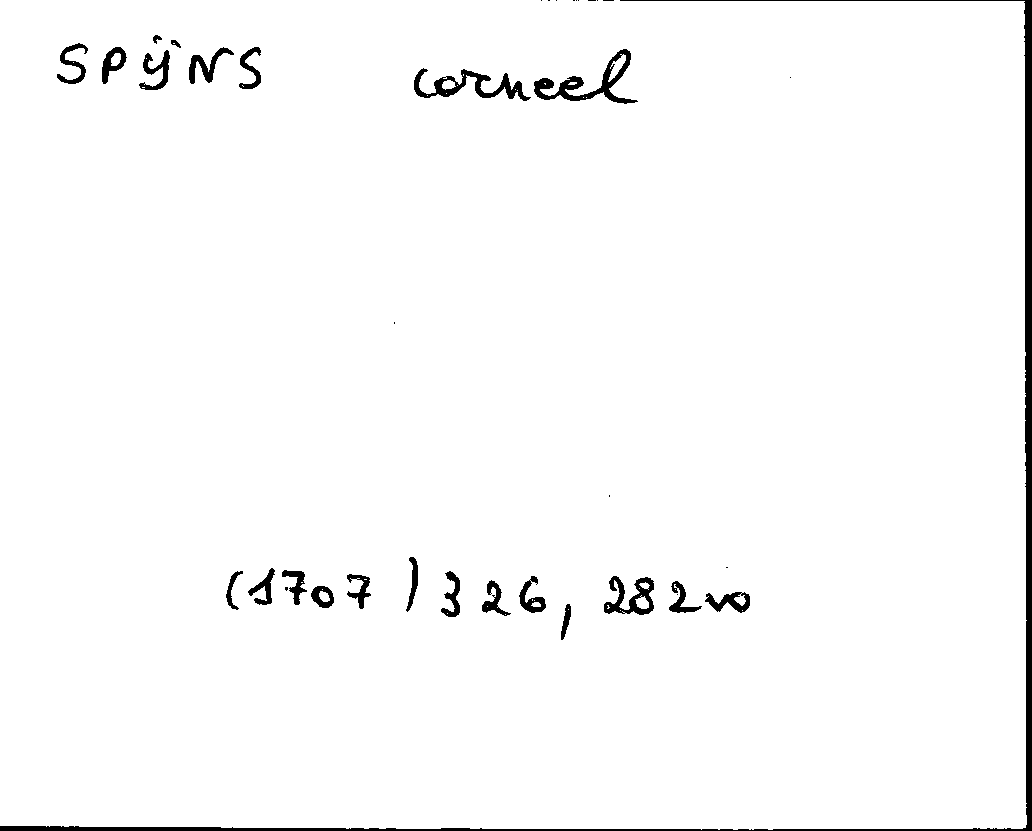 SPÿNS corneel
(1707) 326, 282vo